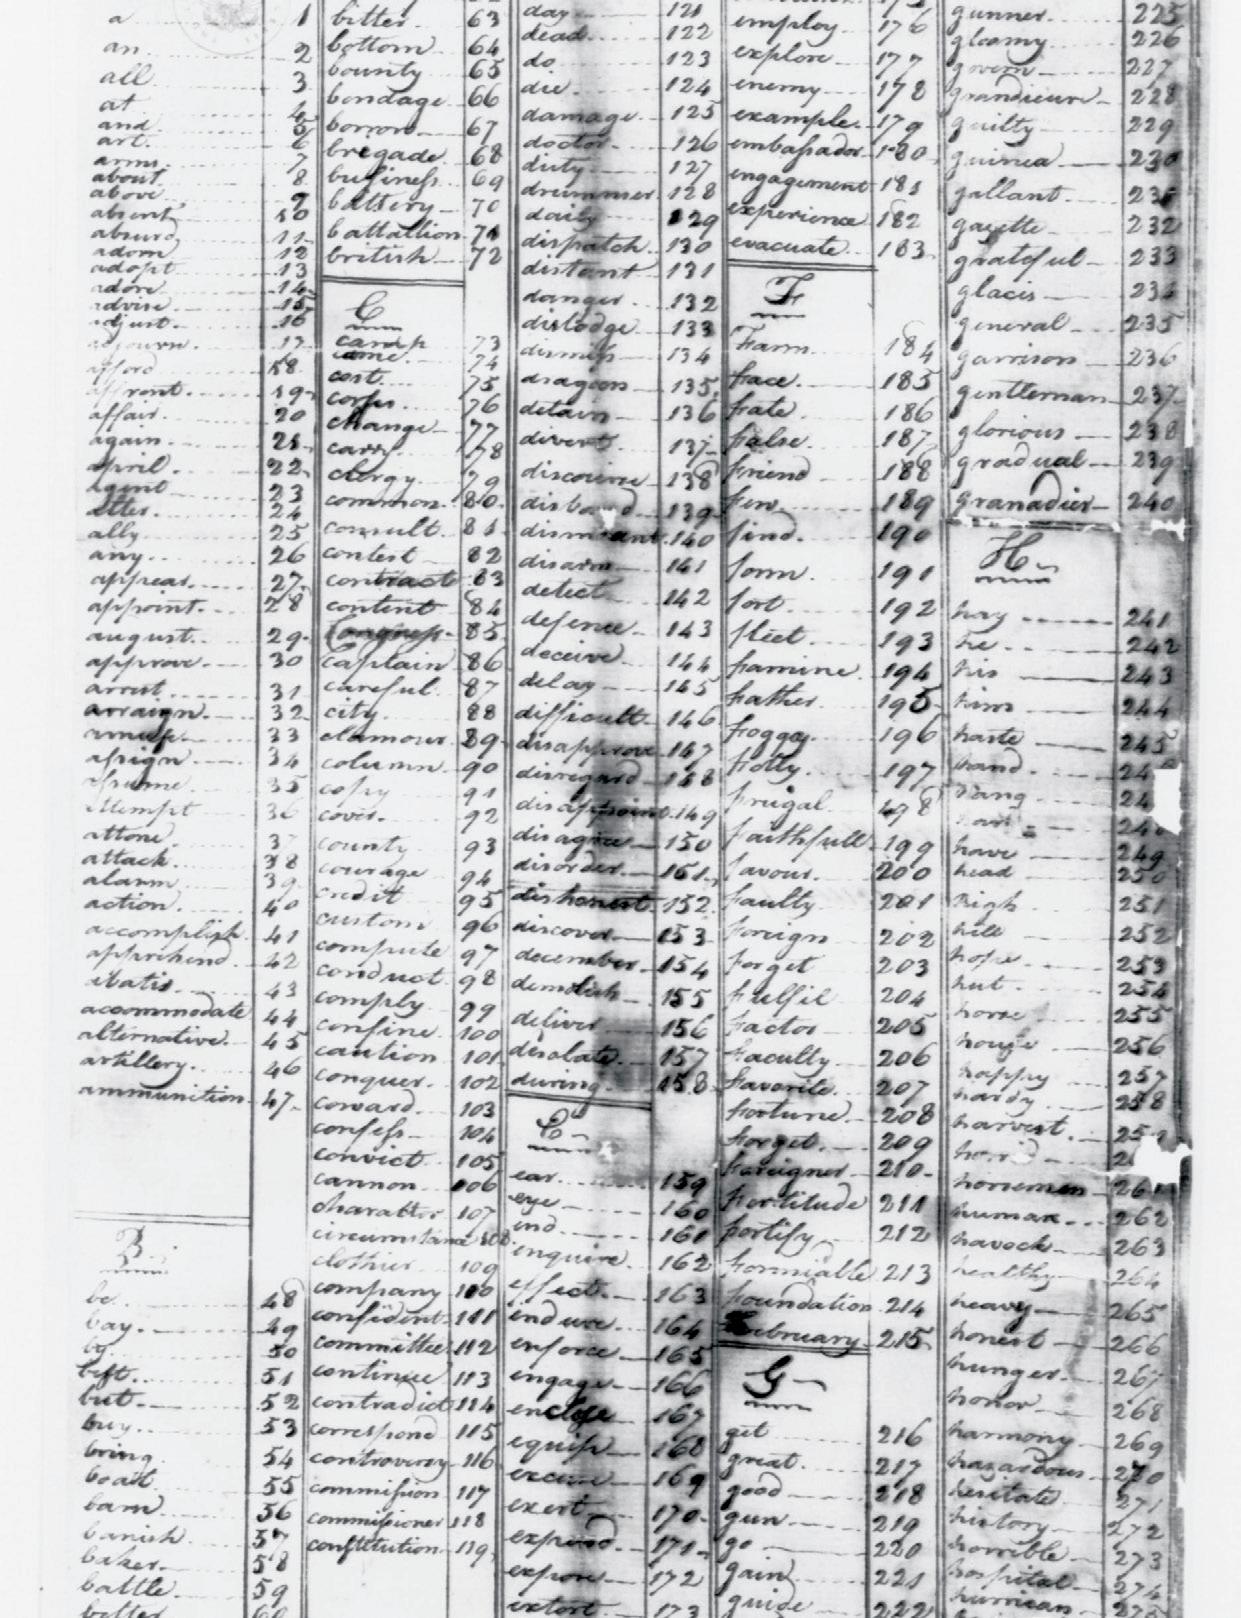 a 1
an 2
all 3
at 4
and 5
art 6
arms 7
about 8
above 9
absent 10
absurd 11
adorn 12
adopt 13
adore 14
advise 15
adjust 16
adjourn 17
afford 18
affront 19
affair 20
again 21
april 22
agent 23
alter 24
ally 25
any 26
appear 27
appoint 28
august 29
approve 30
arrest 31
arraign 32
amuse 33
assign 34
assume 35
attempt 36
attone 37
attack 38
alarm 39
action 40
accomplish 41
apprehend 42
abatis 43
accommodate 44
alternative 45
artillery 46
ammunition 47
B
be 48
bay 49
by 50
best 51
but 52
buy 53
bring 54
boat 55
barn 56
banish 57
baker 58
battle 59
better 60
bitter 63
bottom 64
bounty 65
bondage 66
borrow 67
bregade 68
business 69
battery 70
battallion 71
british 72
C
camp 73
came 74
cost 75
corps 76
change 77
carry 78
clergy 79
common 80
consult 81
contest 82
contract 83
content 84
Congress 85
captain 86
careful 87
city 88
clamour 89
column 90
copy 91
cover 92
county 93
courage 94
credit 95
custom 96
compute 97
conduct 98
comply 99
confine 100
caution 101
conquer 102
coward 103
confess 104
convict 105
cannon 106
charatter 107
circumstance 108
clothier 109
company 110
confident 111
committee 112
continue 113
contradict 114
correspond 115
controversy 116
commission 117
commissioner 118
constitution 119
day 121
dead 122
do 123
die 124
damage 125
doctor 126
duty 127
drummer 128
daily 129
dispatch 130
distant 131
danger 132
dislodge 133
dismiss 134
dragoon 135
detain 136
divert 137
discourse 138
disband 139
dismount 140
disarm 141
detect 142
defence 143
deceive 144
delay 145
difficult 146
disapprove 147
disregard 148
disappoint 149
disagree 150
disorder 151
dishonest 152
discover 153
december 154
demolish 155
deliver 156
desolate 157
during 158
E
ear 159
eye 160
end 161
enquire 162
effect 163
endure 164
enforce 165
engage 166
enclose 167
equip 168
excuse 169
exert 170
expend 171
expose 172
extort 173
employ 176
explore 177
enemy 178
example 179
embassador 180
engagement 181
experience 182
evacuate 183
F
Farm 184
face 185
fate 186
false 187
friend 188
few 189
find 190
form 191
fort 192
fleet 193
famine 194
father 195
foggy 196
folly 197
frugal 198
faithfull 199
favour 200
faulty 201
foreign 202
forget 203
fulfil 204
factor 205
faculty 206
favorite 207
fortune 208
forget 209
foreigner 210
fortitude 211
fortify 212
formiable 213
foundation 214
february 215
G
get 216
great 217
good 218
gun 219
go 220
gain 221
guide 222
gunner 225
gloomy 226
govern 227
grandieur 228
guilty 229
guinea 230
gallant 231
gazette 232
grateful 233
glacis 234
general 235
garrison 236
gentleman 237
glorious 238
gradual 239
granadier 240
H
hay 241
he 242
his 243
him 244
haste 245
hand 24
hang 24
24
have 249
head 250
high 251
hill 252
hope 253
hut 254
horse 255
house 256
happy 257
hardy 258
harvest 259
horrid 2
horsemen 261
human 262
havock 263
healthy 264
heavy 265
honest 266
hunger 267
honor 268
harmony 269
hazardous 270
hesitate 271
history 272
horrible 273
hospital 274
hurrican 275